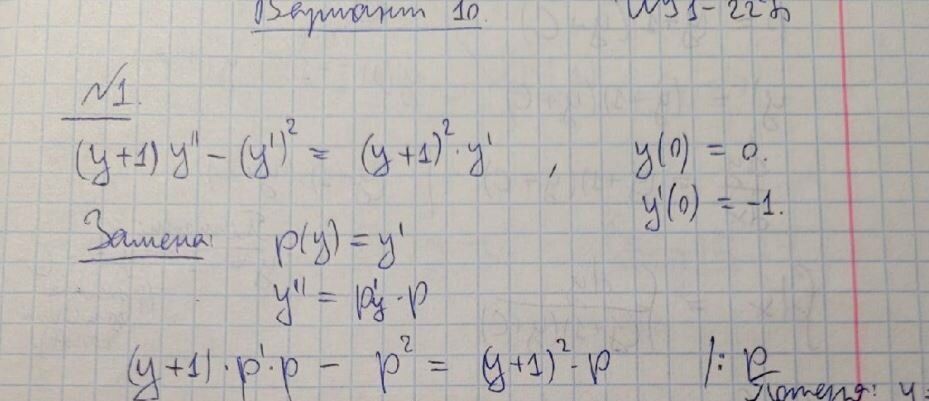 Вариант 10.
№1.
(y+1) y'' − (y')² = (y+1)² · y' , y(0) = 0.
y'(0) = −1.
Замена: p(y) = y'
y'' = p'y · p
(y+1) · p' · p − p² = (y+1)² · p /: p
Потеря: y